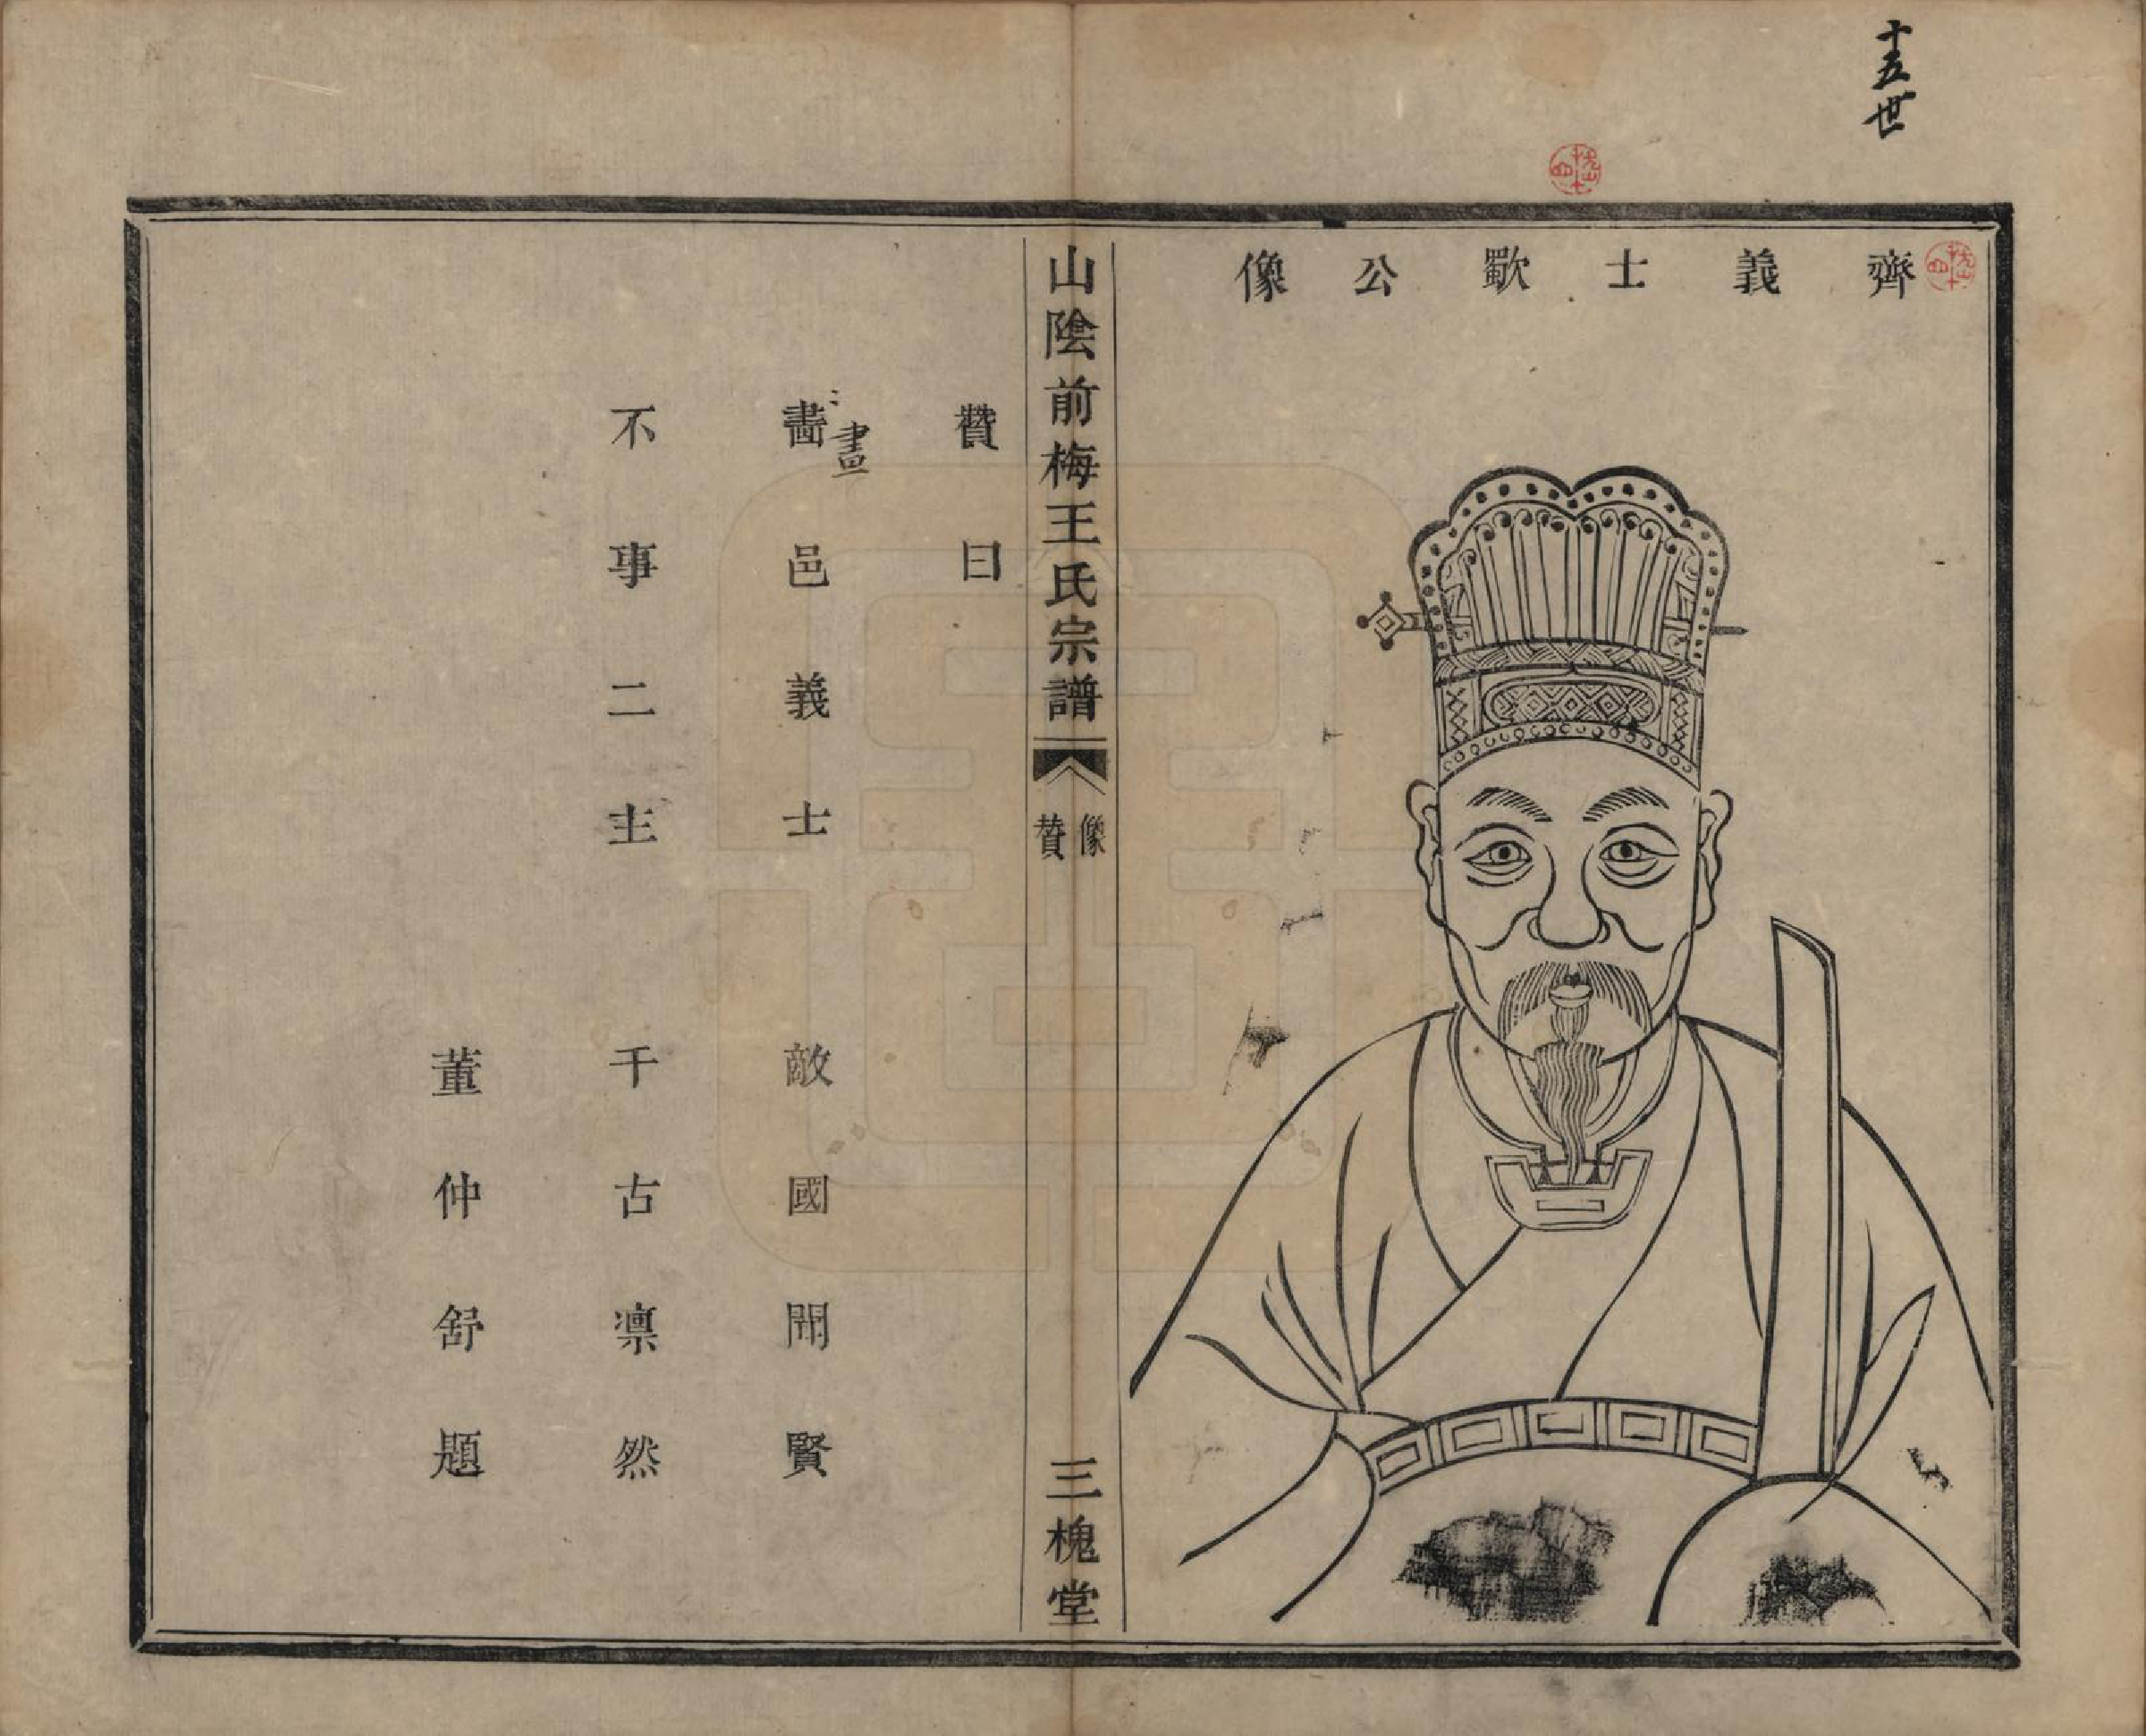 十五世
齊義士歜公像
山陰前梅王氏宗譜
像
贊
三槐堂
贊曰
畵邑義士　敵國聞賢
畫
不事二主　千古凛然
董仲舒題